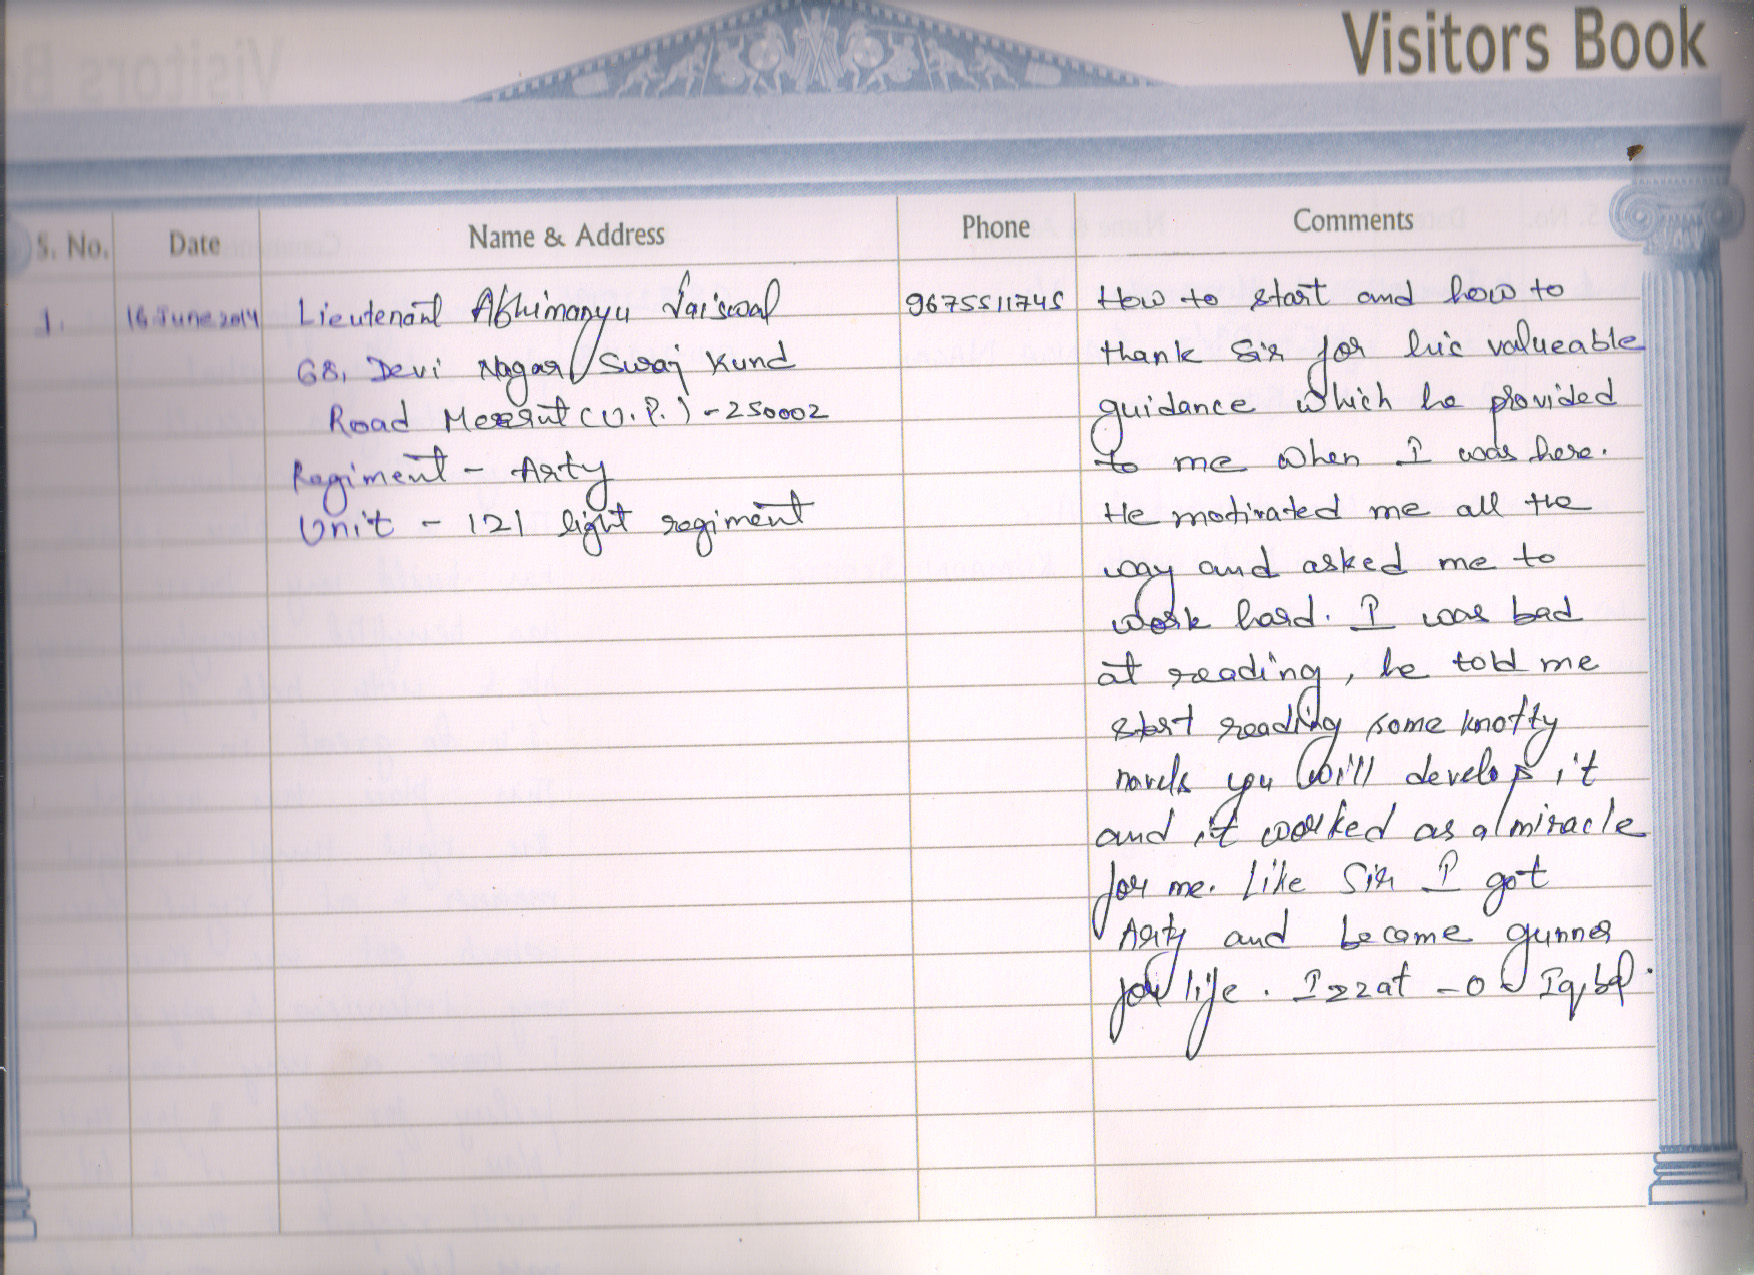 Visitors Book
S. No. Date Name & Address Phone Comments
1. 16 June 2014 Lieutenant Abhimanyu Jaiswal 9675511745 How to start and how to
68, Devi Nagar Suraj Kund thank Sir for his valueable
Road Meerut (U.P.) - 250002 guidance which he provided
Regiment - Arty to me when I was here.
Unit - 121 light regiment He motivated me all the
way and asked me to
work hard. I was bad
at reading, he told me
start reading some knotty
novels you will develop it
and it worked as a miracle
for me. Like Sir I got
Arty and become gunner
for life. Izzat - o Iqbal.